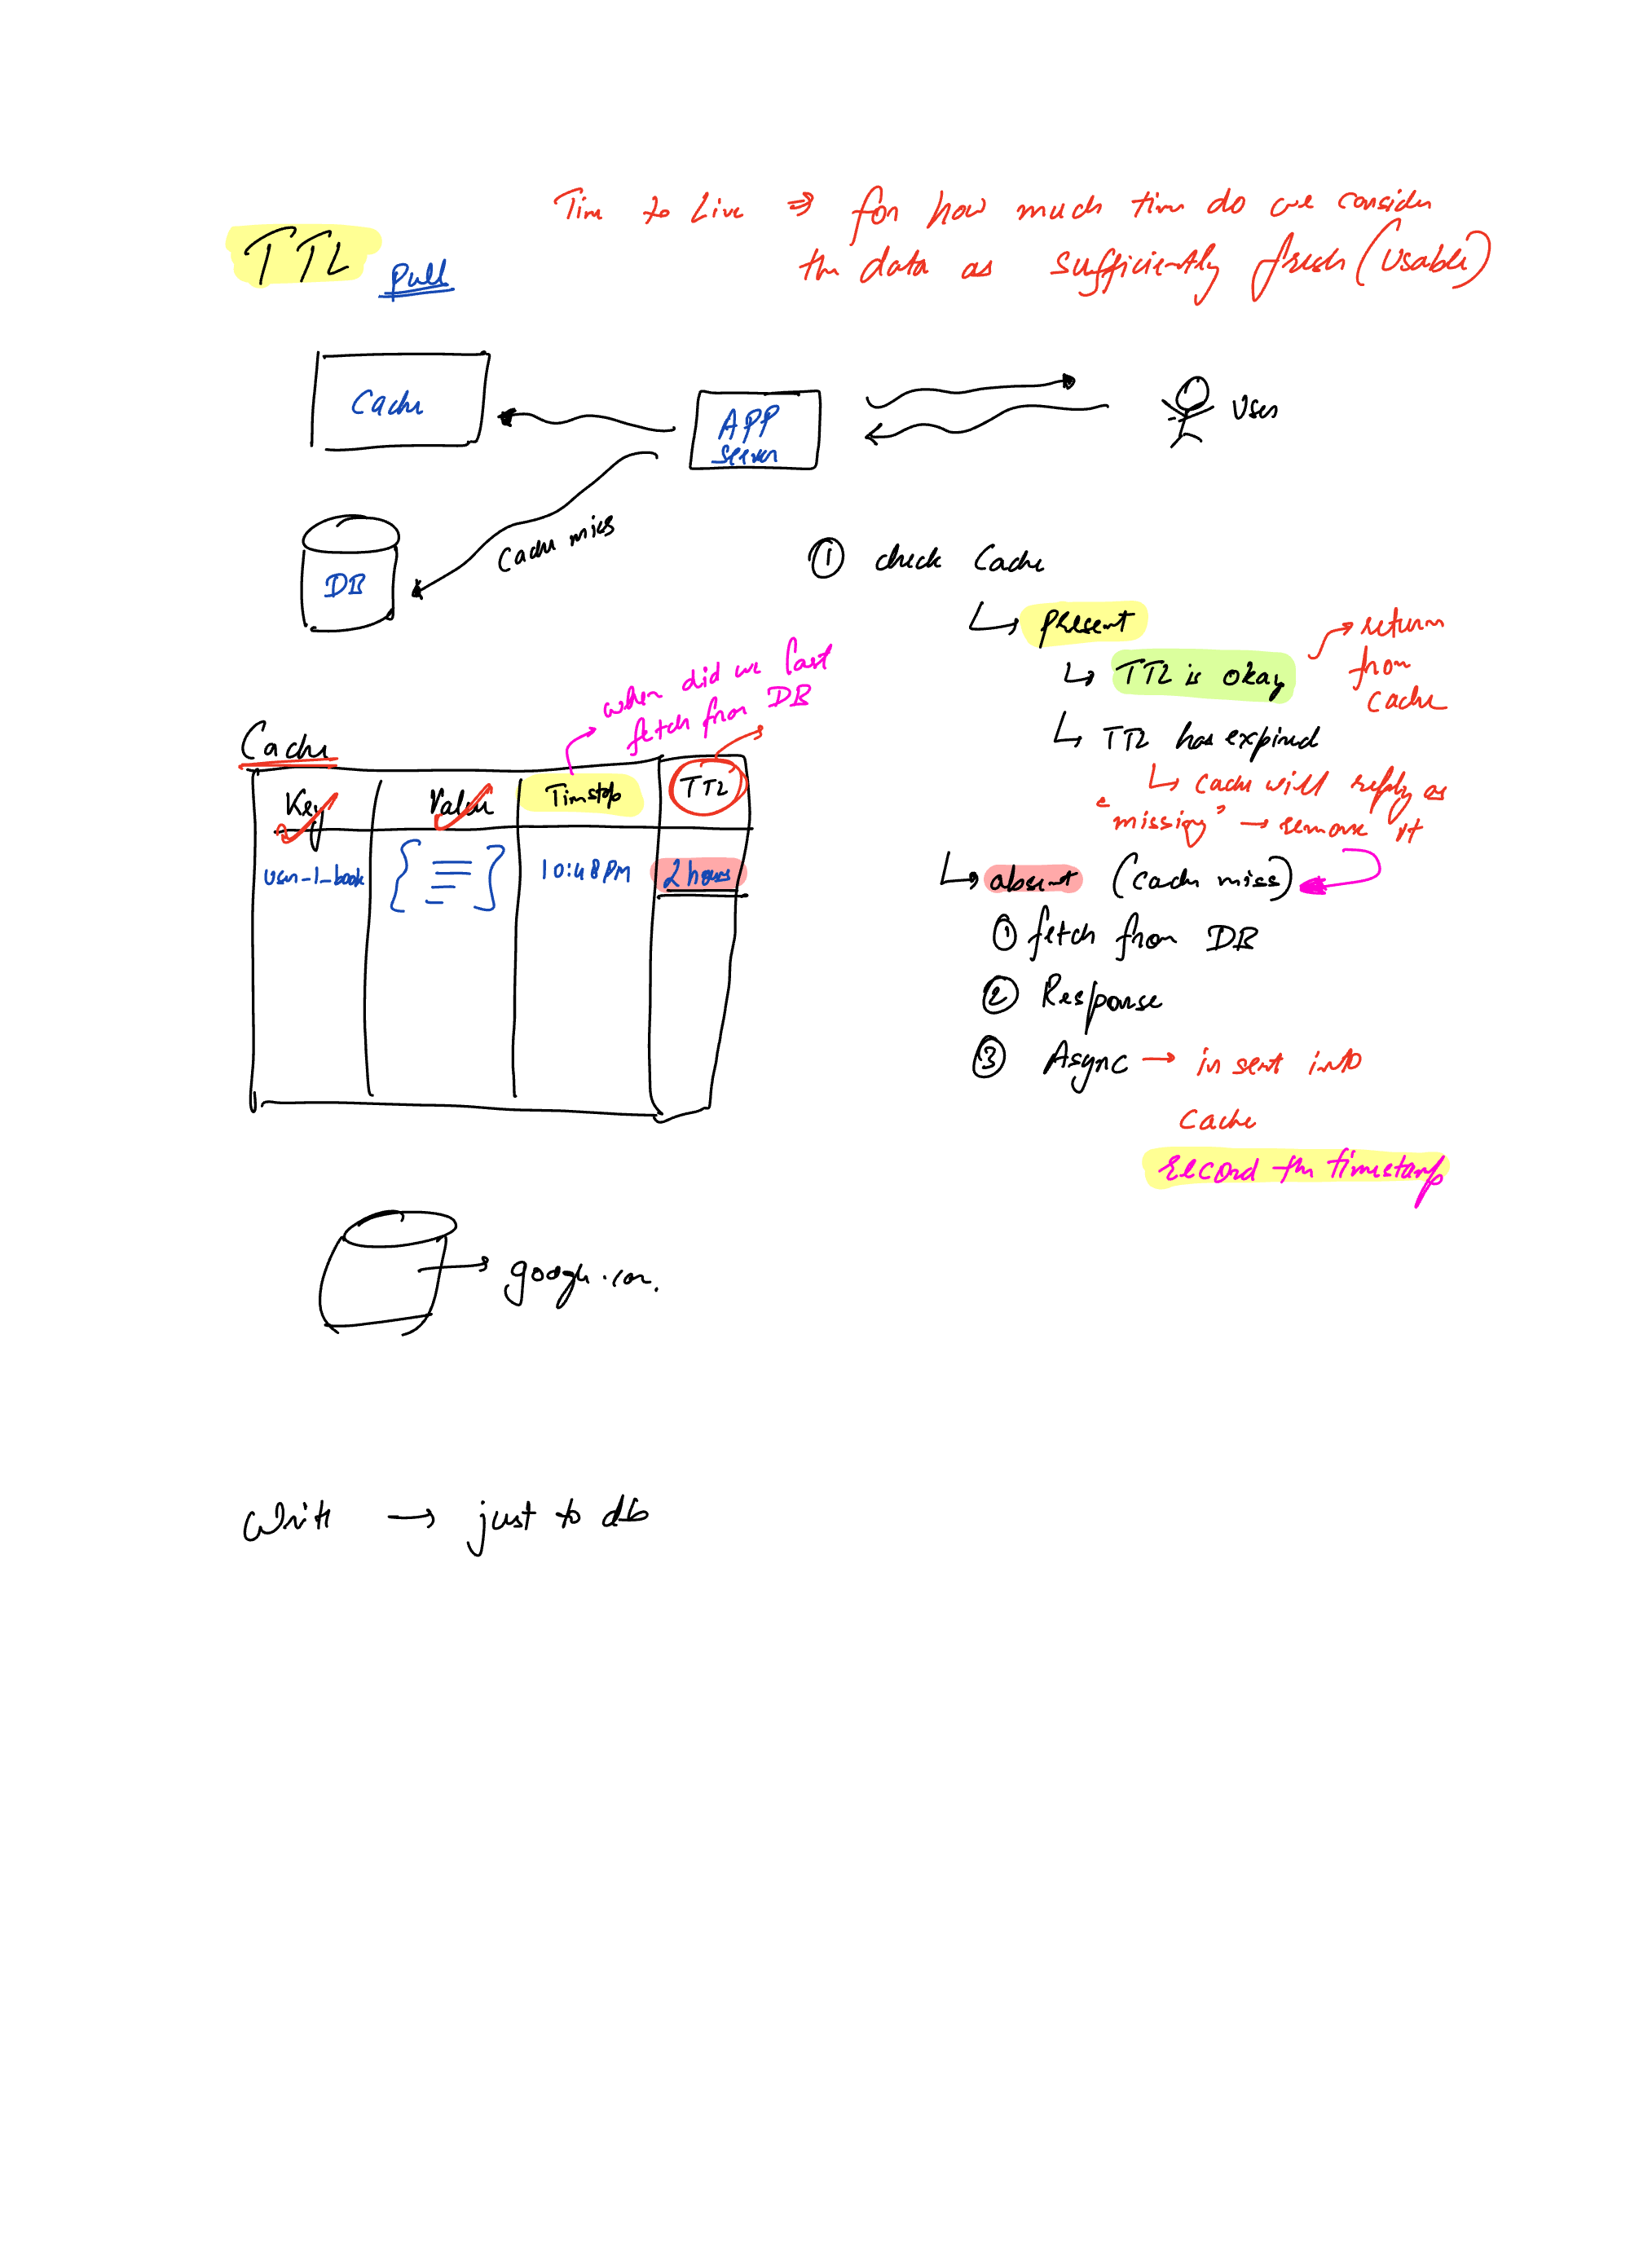 Time to Live ⇒ for how much time do we consider
the data as sufficiently fresh (Usable)
TTL
Pull
Cache
APP
Server
User
Cache miss
DB
① check Cache
↳ Present
↳ TTL is okay → return
from
cache
↳ TTL has expired
↳ cache will reply as
"missing" → remove it
↳ absent (Cache miss)
① fetch from DB
② Response
③ Async → insert into
Cache
record the timestamp
when did we last
fetch from DB
Cache
Key Value Timestp TTL
user_1_book { } 10:48 PM 2 hours
google.com.
Write → just to db